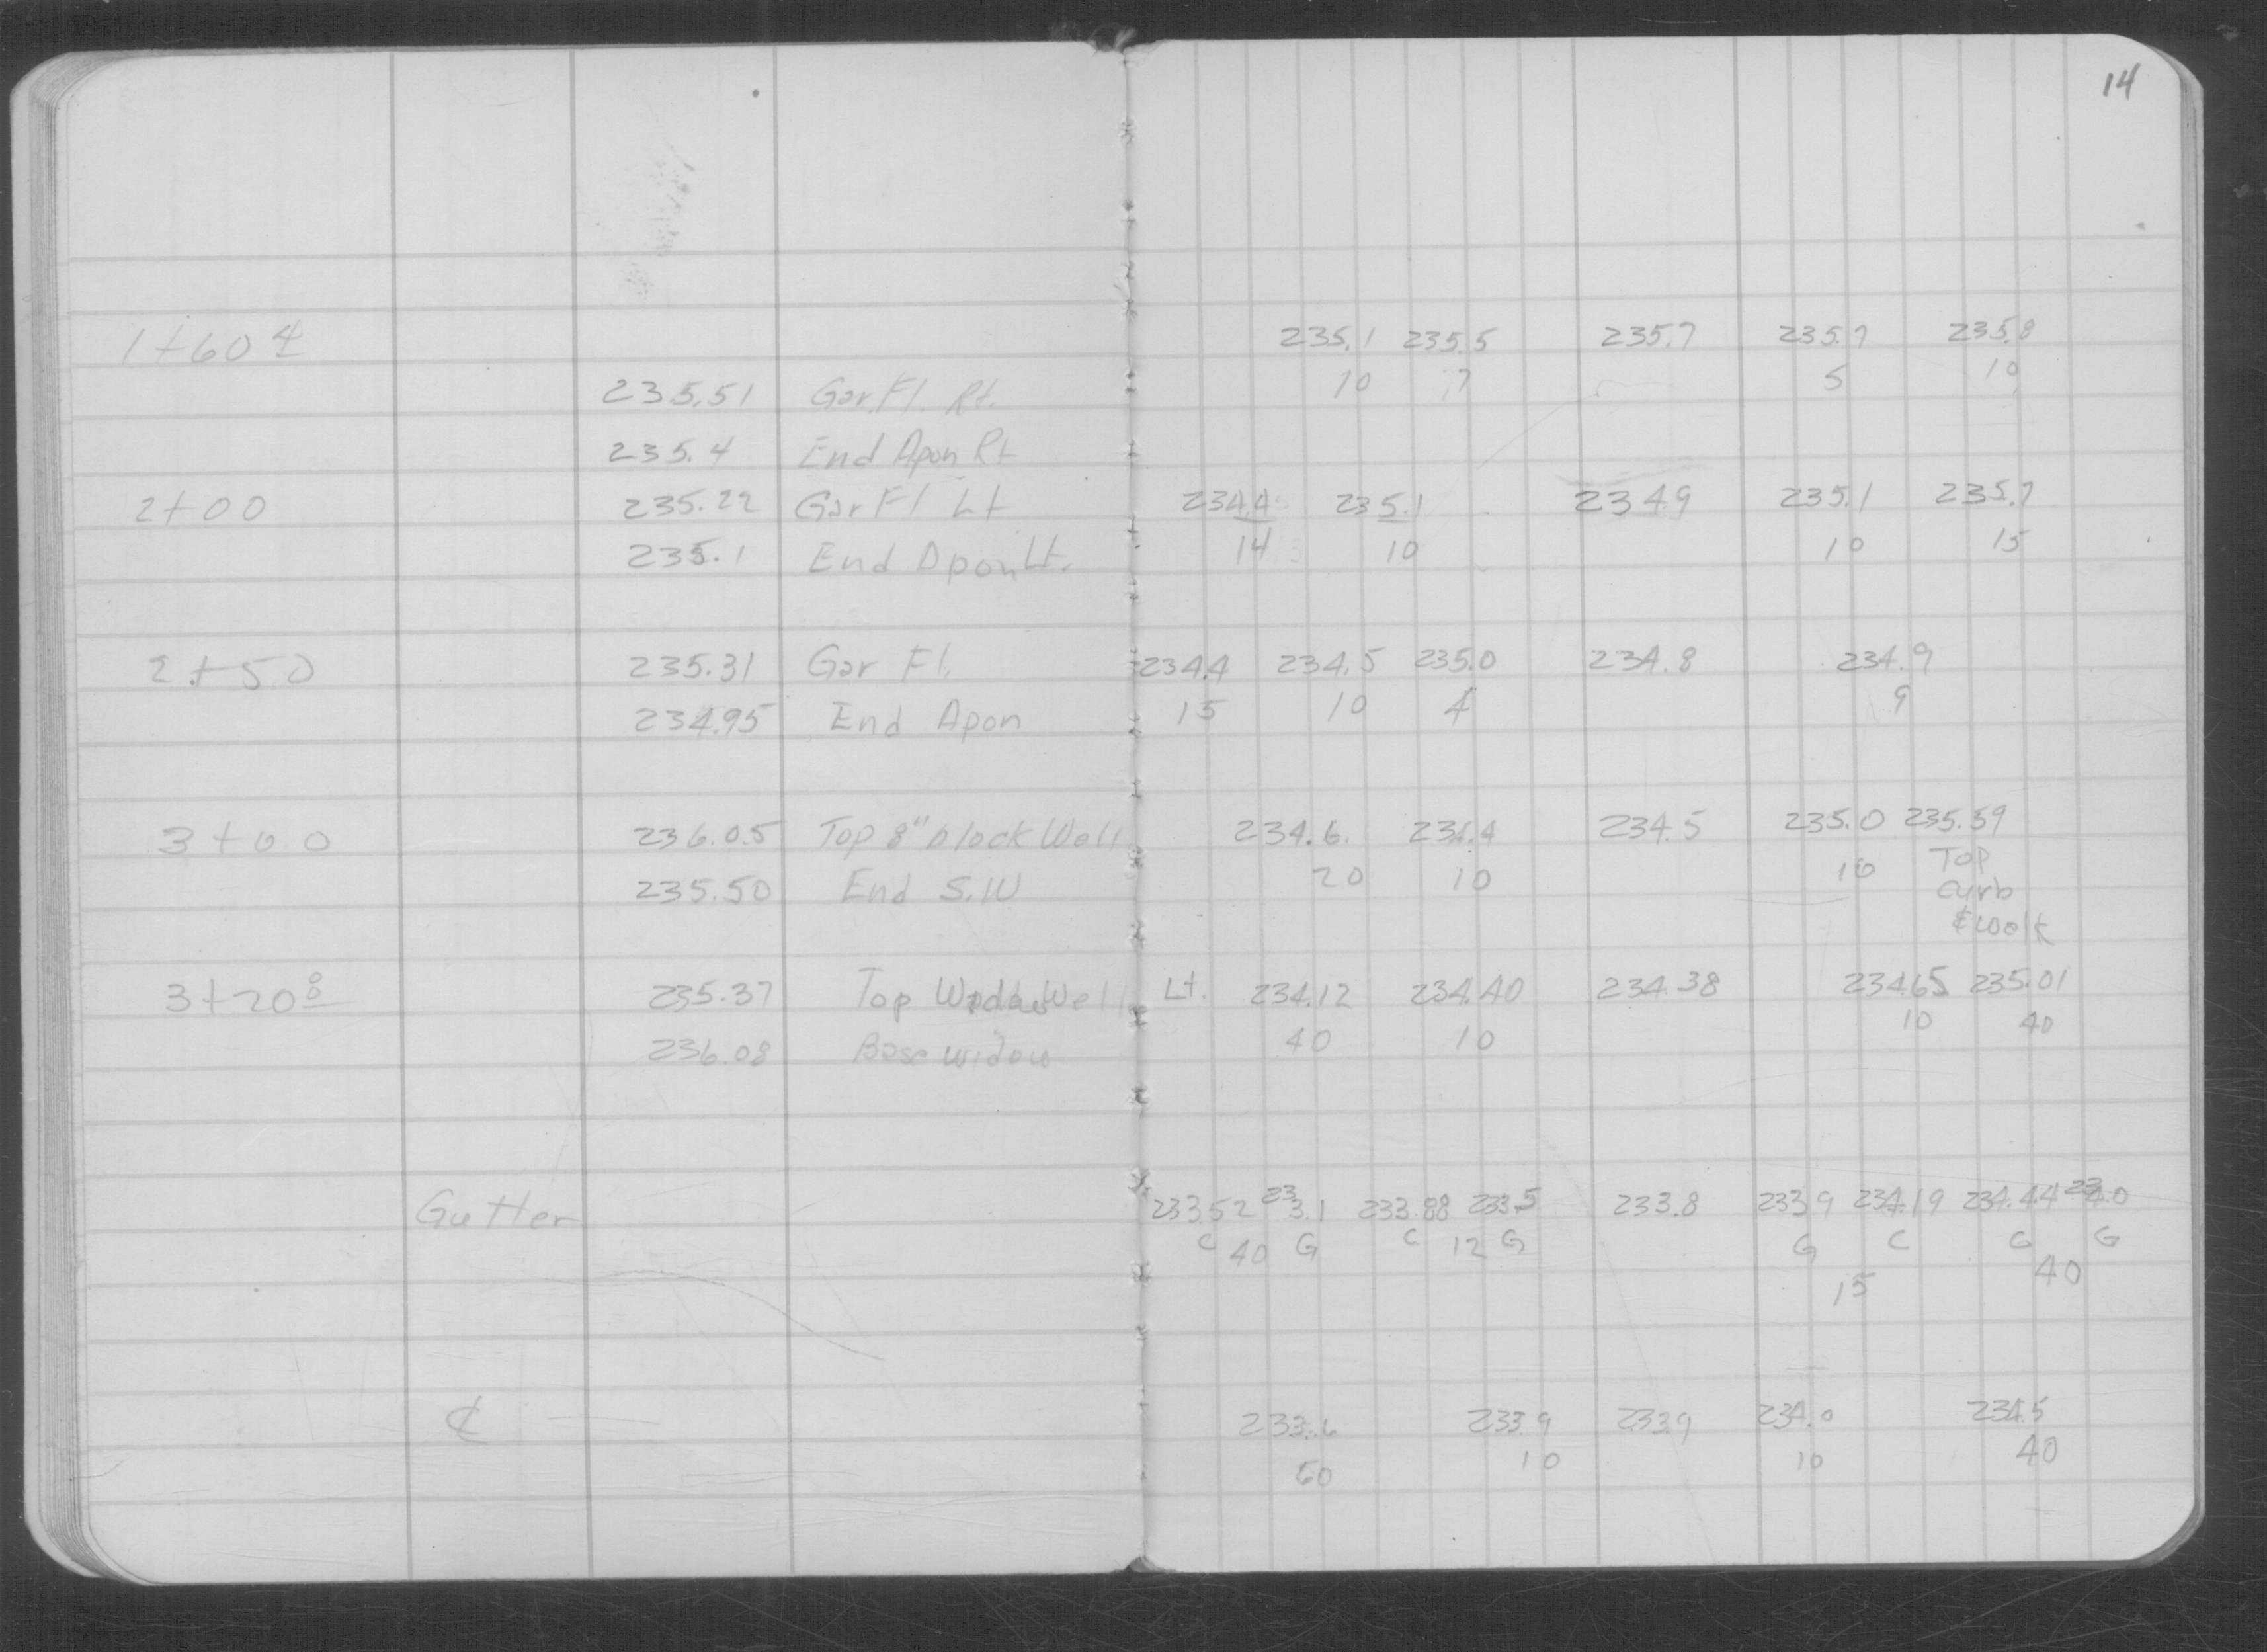 14
1+60 4 235.1 235.5 235.7 235.7 235.8
235.51 Gar. Fl. Rt. 10 7 5 10
235.4 End Apon Rt
2+00 235.22 Gar Fl Lt 234.4 235.1 234.9 235.1 235.7
235.1 End Apon Lt. 14 10 10 15
2+50 235.31 Gar Fl. 234.4 234.5 235.0 234.8 234.9
234.95 End Apon 15 10 4 9
3+00 236.05 Top 8" block Wall 234.6 234.4 234.5 235.0 235.59
235.50 End S.W 20 10 10 Top
curb
& walk
3+20 8 235.37 Top Window Well Lt. 234.12 234.40 234.38 234.65 235.01
236.08 Base widow 40 10 10 40
Gutter 233.52 233.1 233.88 233.5 233.8 233.9 234.19 234.44 234.0
C 40 G C 12 G G C C G
15 40
℄ 233.6 233.9 233.9 234.0 234.5
10 10 40